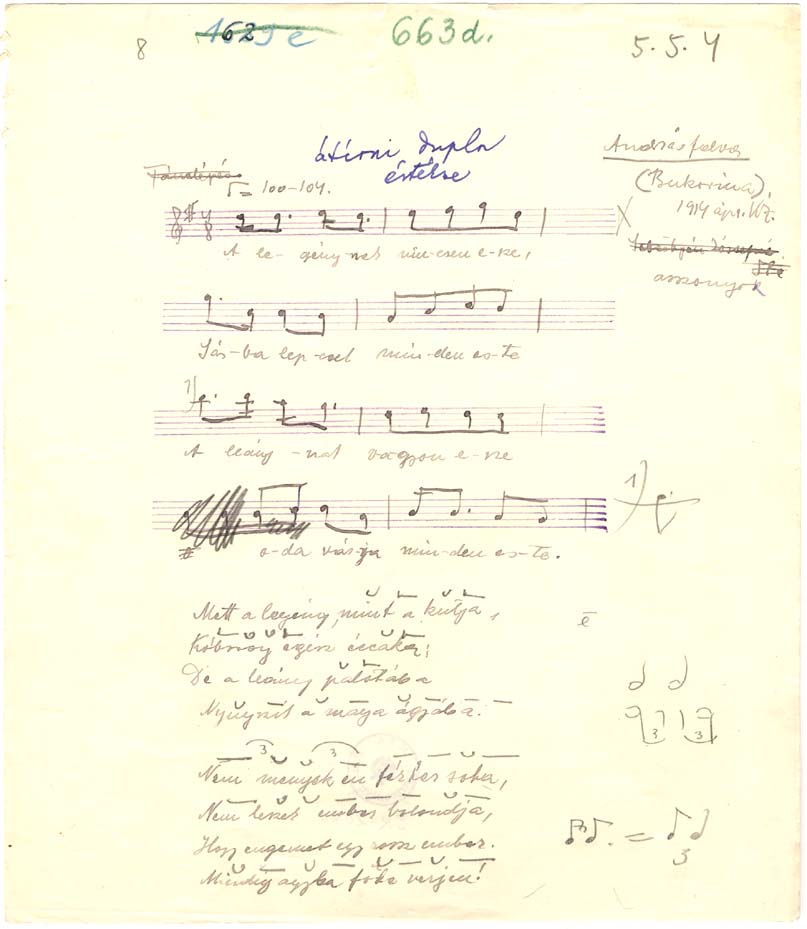 8 1629e 663d. 5.5.4
átírni dupla
értékre
Andrásfalva
(Bukovina),
1914 ápr.
Tánclépés
= 100-104.
asszonyok
A le-gény-nek nin-csen e-sze,
Sás-ba lep-csel min-den es-te
1)
A leány-nak vagyon e-sze
1)
o-da vár-ja min-den es-te.
Mett a legény, mint a kutja,
Kóborog egész éccaka;
ē
De a leány palotába
Nyugszik a maga ágyába.
3 3
3 3
Nem menyek én férhez soha,
Nem leszek ember bolondja,
Hogy engemet egy rossz ember.
=
3
Mindég agyba főbe verjen!